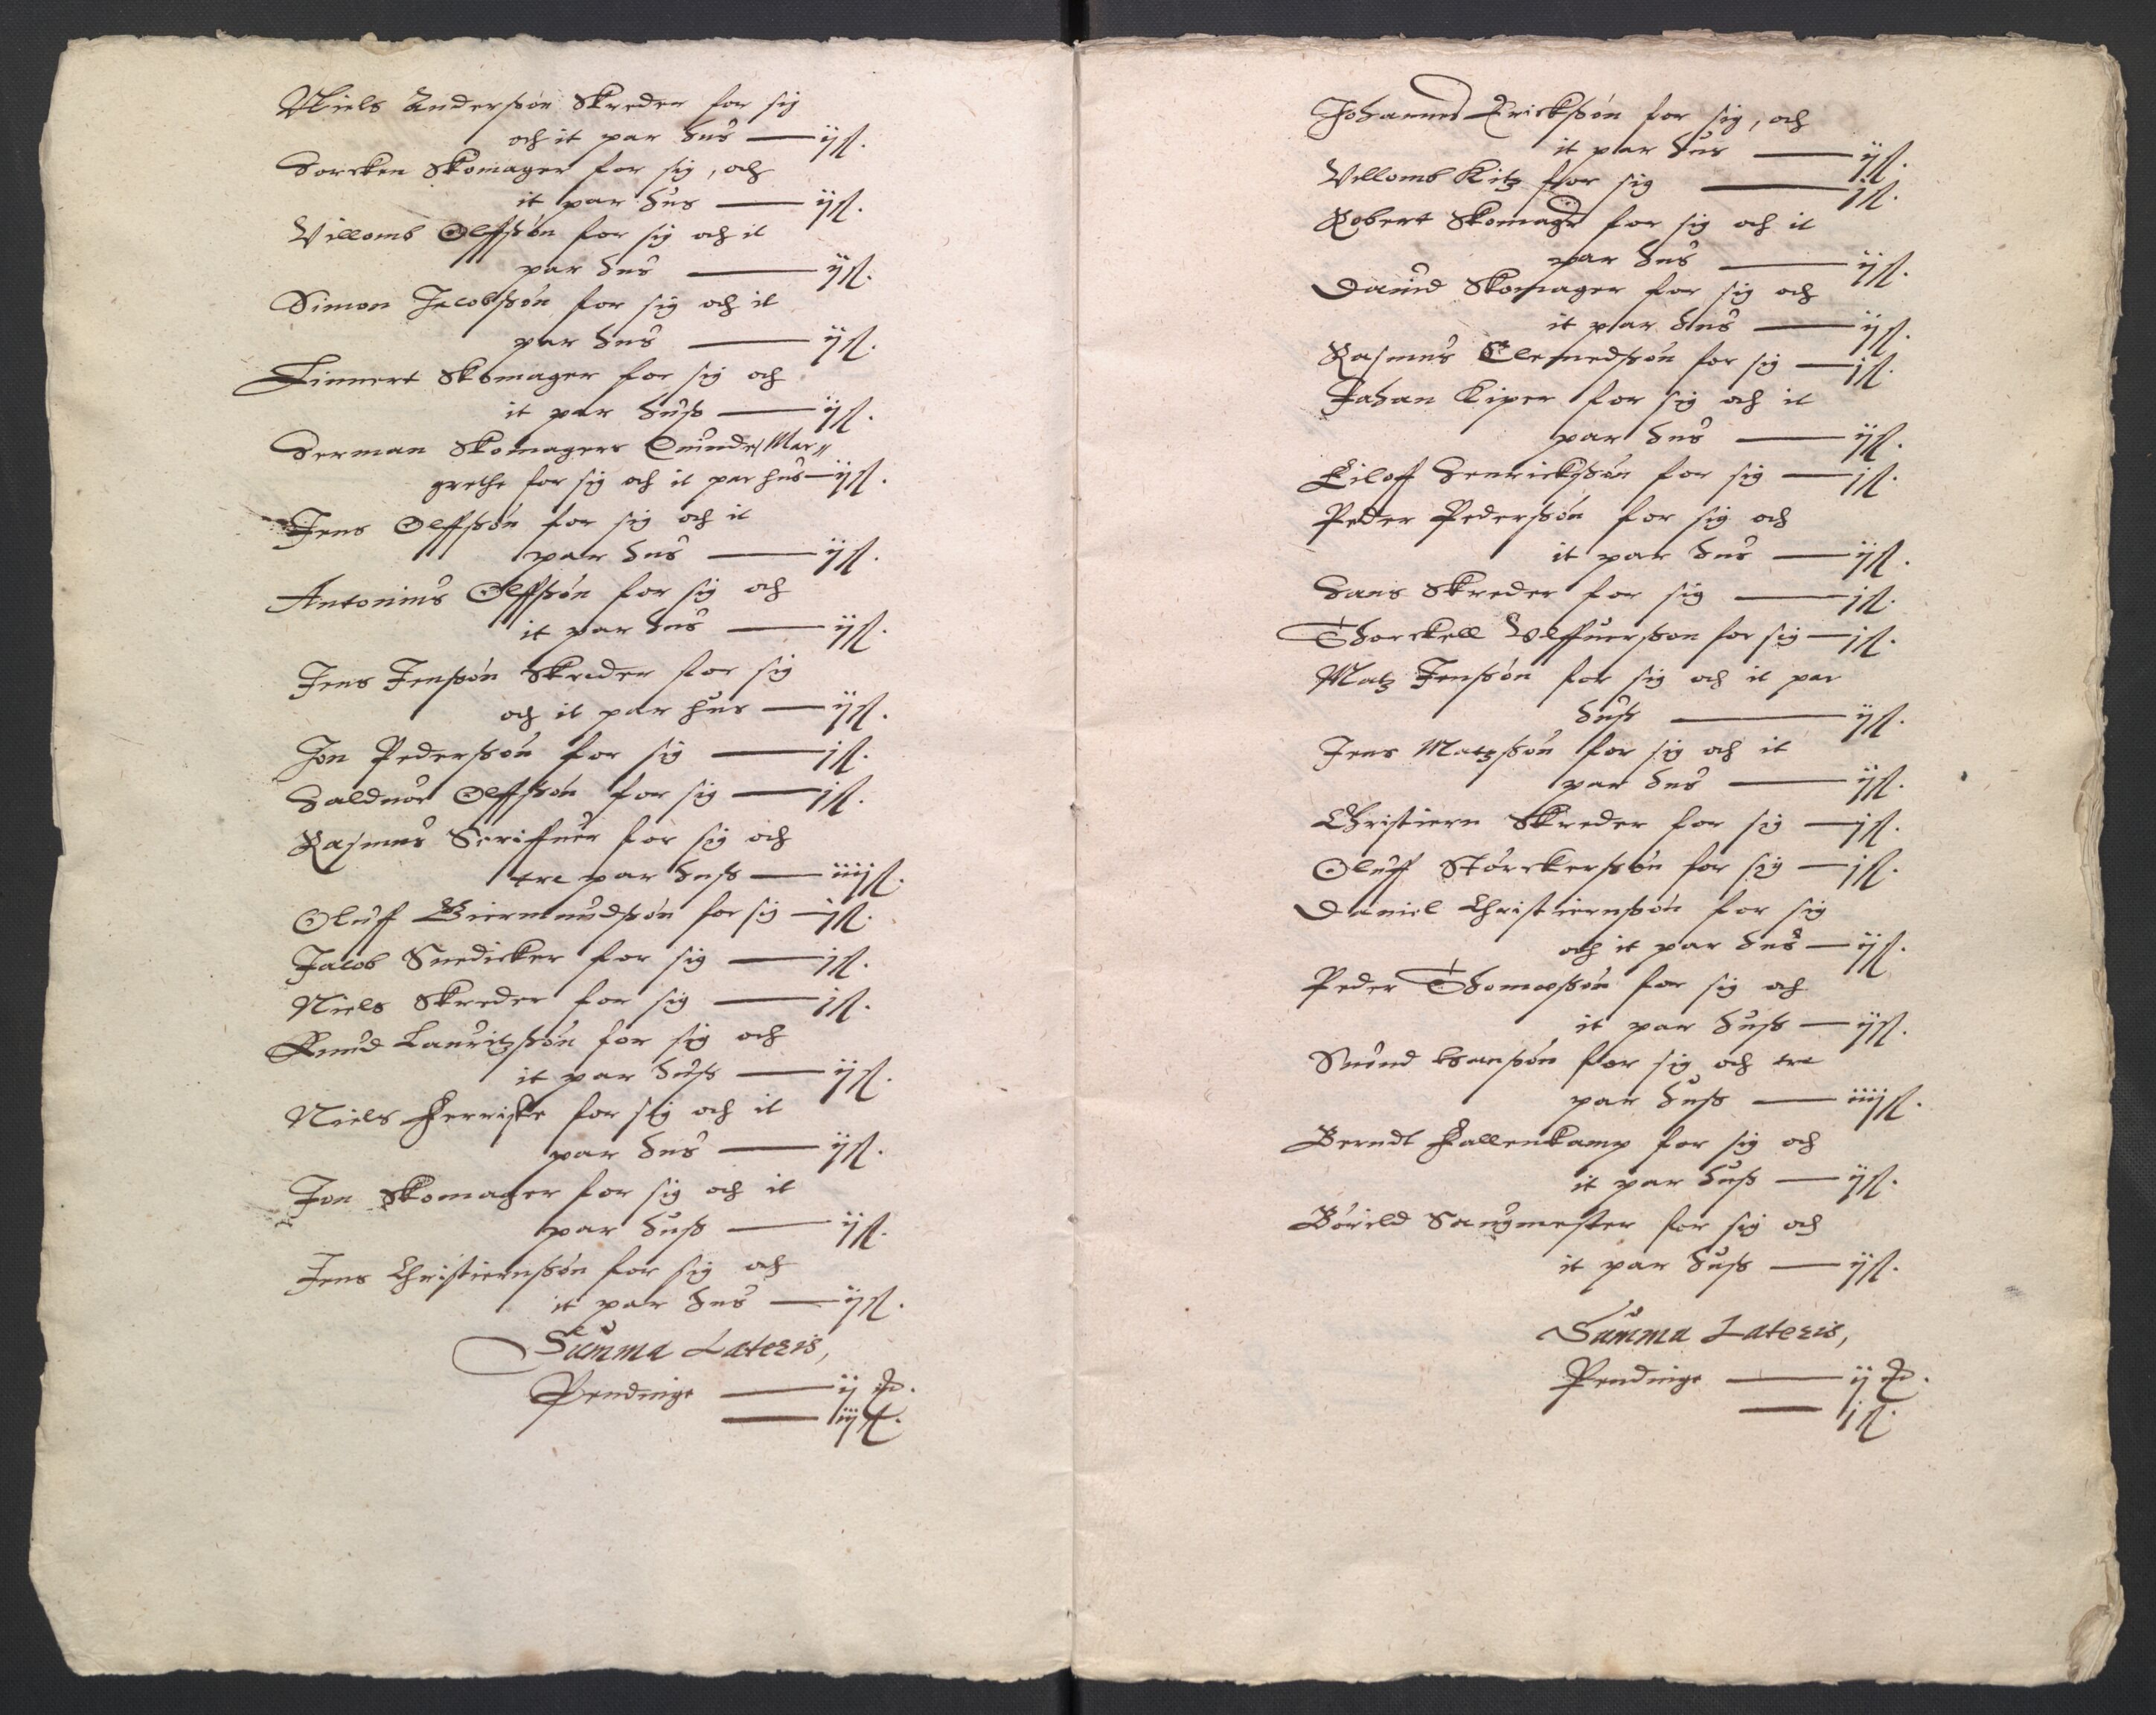 Niels Anderßøn Skreder for sig
och it par hus — ij ß.
Sercken Skomager for sig, och
it par hus — ij ß.
Villomb Olffßøn for sig och it
par hus — ij ß.
Simon Jacobßøn for sig och it
par hus — ij ß.
Linnert Skomager for sig och
it par huß — ij ß.
Herman Skomagers Quinde, Mar„
grethe for sig och it par hus — ij ß.
Jens Olffßøn for sig och it
par hus — ij ß.
Antonius Olffßøn for sig och
it par hus — ij ß.
Jens Jenßøn Skreder for sig
och it par hus — ij ß.
Jon Pederßøn for sig — j ß.
Halduor Olffßøn for sig — j ß.
Rasmus Scriffuer for sig och
tre par huß — iiij ß.
Oluff Biermundßøn for sig — j ß.
Jacob Snedicker for sig — j ß.
Niels Skreder for sig — j ß.
Knud Lauritzßøn for sig och
it par huß — ij ß.
Niels Ferriske for sig och it
par hus — ij ß.
Jon Skomager for sig och it
par huß — ij ß.
Jens Christiernßøn for sig och
it par hus — ij ß.
Summa Lateris,
Pendinge — ij
— iij ß.
Johannes Erickßøn for sig, och
it par hus — ij ß.
Villomb Kitz for sig — j ß.
Robert Skomager for sig och it
par hus — ij ß.
Dauid Skomager for sig och
it par hus — ij ß.
Rasmus Clemedßøn for sig — j ß.
Johan Kiper for sig och it
par hus — ij ß.
Eiloff Henrickßøn for sig — j ß.
Peder Pederßøn for sig och
it par hus — ij ß.
Hans Skreder for sig — j ß.
Thorckell Vlffuerßon for sig — j ß.
Matz Jenßøn for sig och it par
huß — ij ß.
Jens Matzßøn for sig och it
par hus — ij ß.
Christiern Skreder for sig — j ß.
Oluff Størckerßøn for sig — j ß.
Daniel Christiernßøn for sig
och it par hus — ij ß.
Peder Thomæßøn for sig och
it par huß — ij ß.
Suend for sig och tre
par huß — iiij ß.
Berndt Fallenkamp for sig och
it par huß — ij ß.
Børild Sangmester for sig och
it par huß — ij ß.
Summa Lateris,
Pendinge — ij
— j ß.